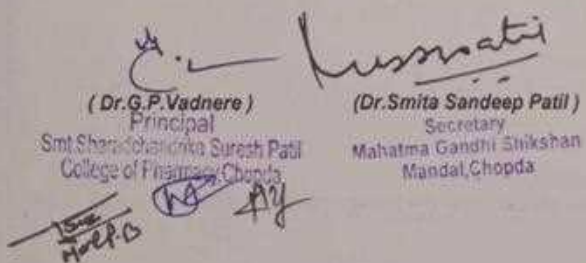 (Dr.G.P.Vadnere)
Principal
Smt.Sharadchandrika Suresh Patil
College of Pharmacy,Chopda
(Dr.Smita Sandeep Patil)
Secretary
Mahatma Gandhi Shikshan
Mandal,Chopda